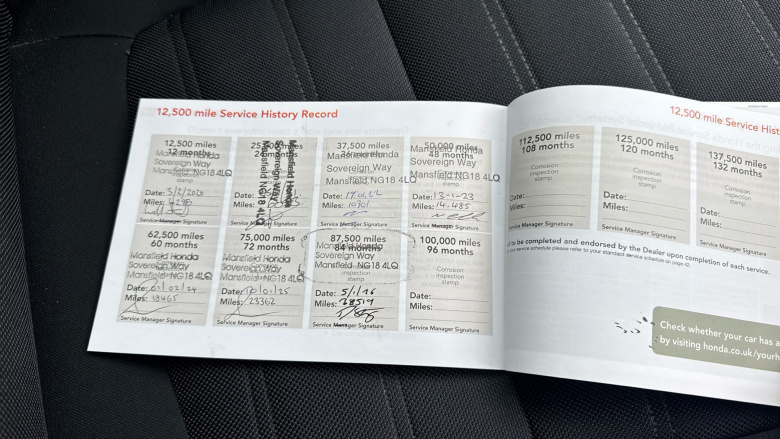 12,500 mile Service History Record
12,500 miles
12 months
Mansfield Honda
Sovereign Way
Mansfield NG18 4LQ
Date: 5/2/2020
Miles:
Service Manager Signature
Mansfield Honda
Sovereign Way
Mansfield NG18 4LQ
Date:
Miles:
Service Manager Signature
37,500 miles
Mansfield Honda
Sovereign Way
Mansfield NG18 4LQ
Date:
Miles: 10701
Service Manager Signature
50,000 miles
48 months
Mansfield Honda
Sovereign Way
Mansfield NG18 4LQ
Date: 13-1-23
Miles: 14,485
Service Manager Signature
62,500 miles
60 months
Mansfield Honda
Sovereign Way
Mansfield NG18 4LQ
Date: 01/02/24
Miles: 18465
Service Manager Signature
75,000 miles
72 months
Mansfield Honda
Sovereign Way
Mansfield NG18 4LQ
Date: 10/01/25
Miles: 23362
Service Manager Signature
87,500 miles
84 months
Mansfield Honda
Sovereign Way
Mansfield NG18 4LQ
inspection
stamp
Date: 5/1/26
Miles: 28519
Service Manager Signature
100,000 miles
96 months
Corrosion
inspection
stamp
Date:
Miles:
Service Manager Signature
12,500 mile Service Hist
112,500 miles
108 months
Corrosion
inspection
stamp
Date:
Miles:
Service Manager Signature
125,000 miles
120 months
Corrosion
inspection
stamp
Date:
Miles:
Service Manager Signature
137,500 miles
132 months
Corrosion
inspection
stamp
Date:
Miles:
Service Manager Signature
to be completed and endorsed by the Dealer upon completion of each service.
service please refer to your standard service schedule on page 42.
Check whether your car has a
by visiting honda.co.uk/yourh